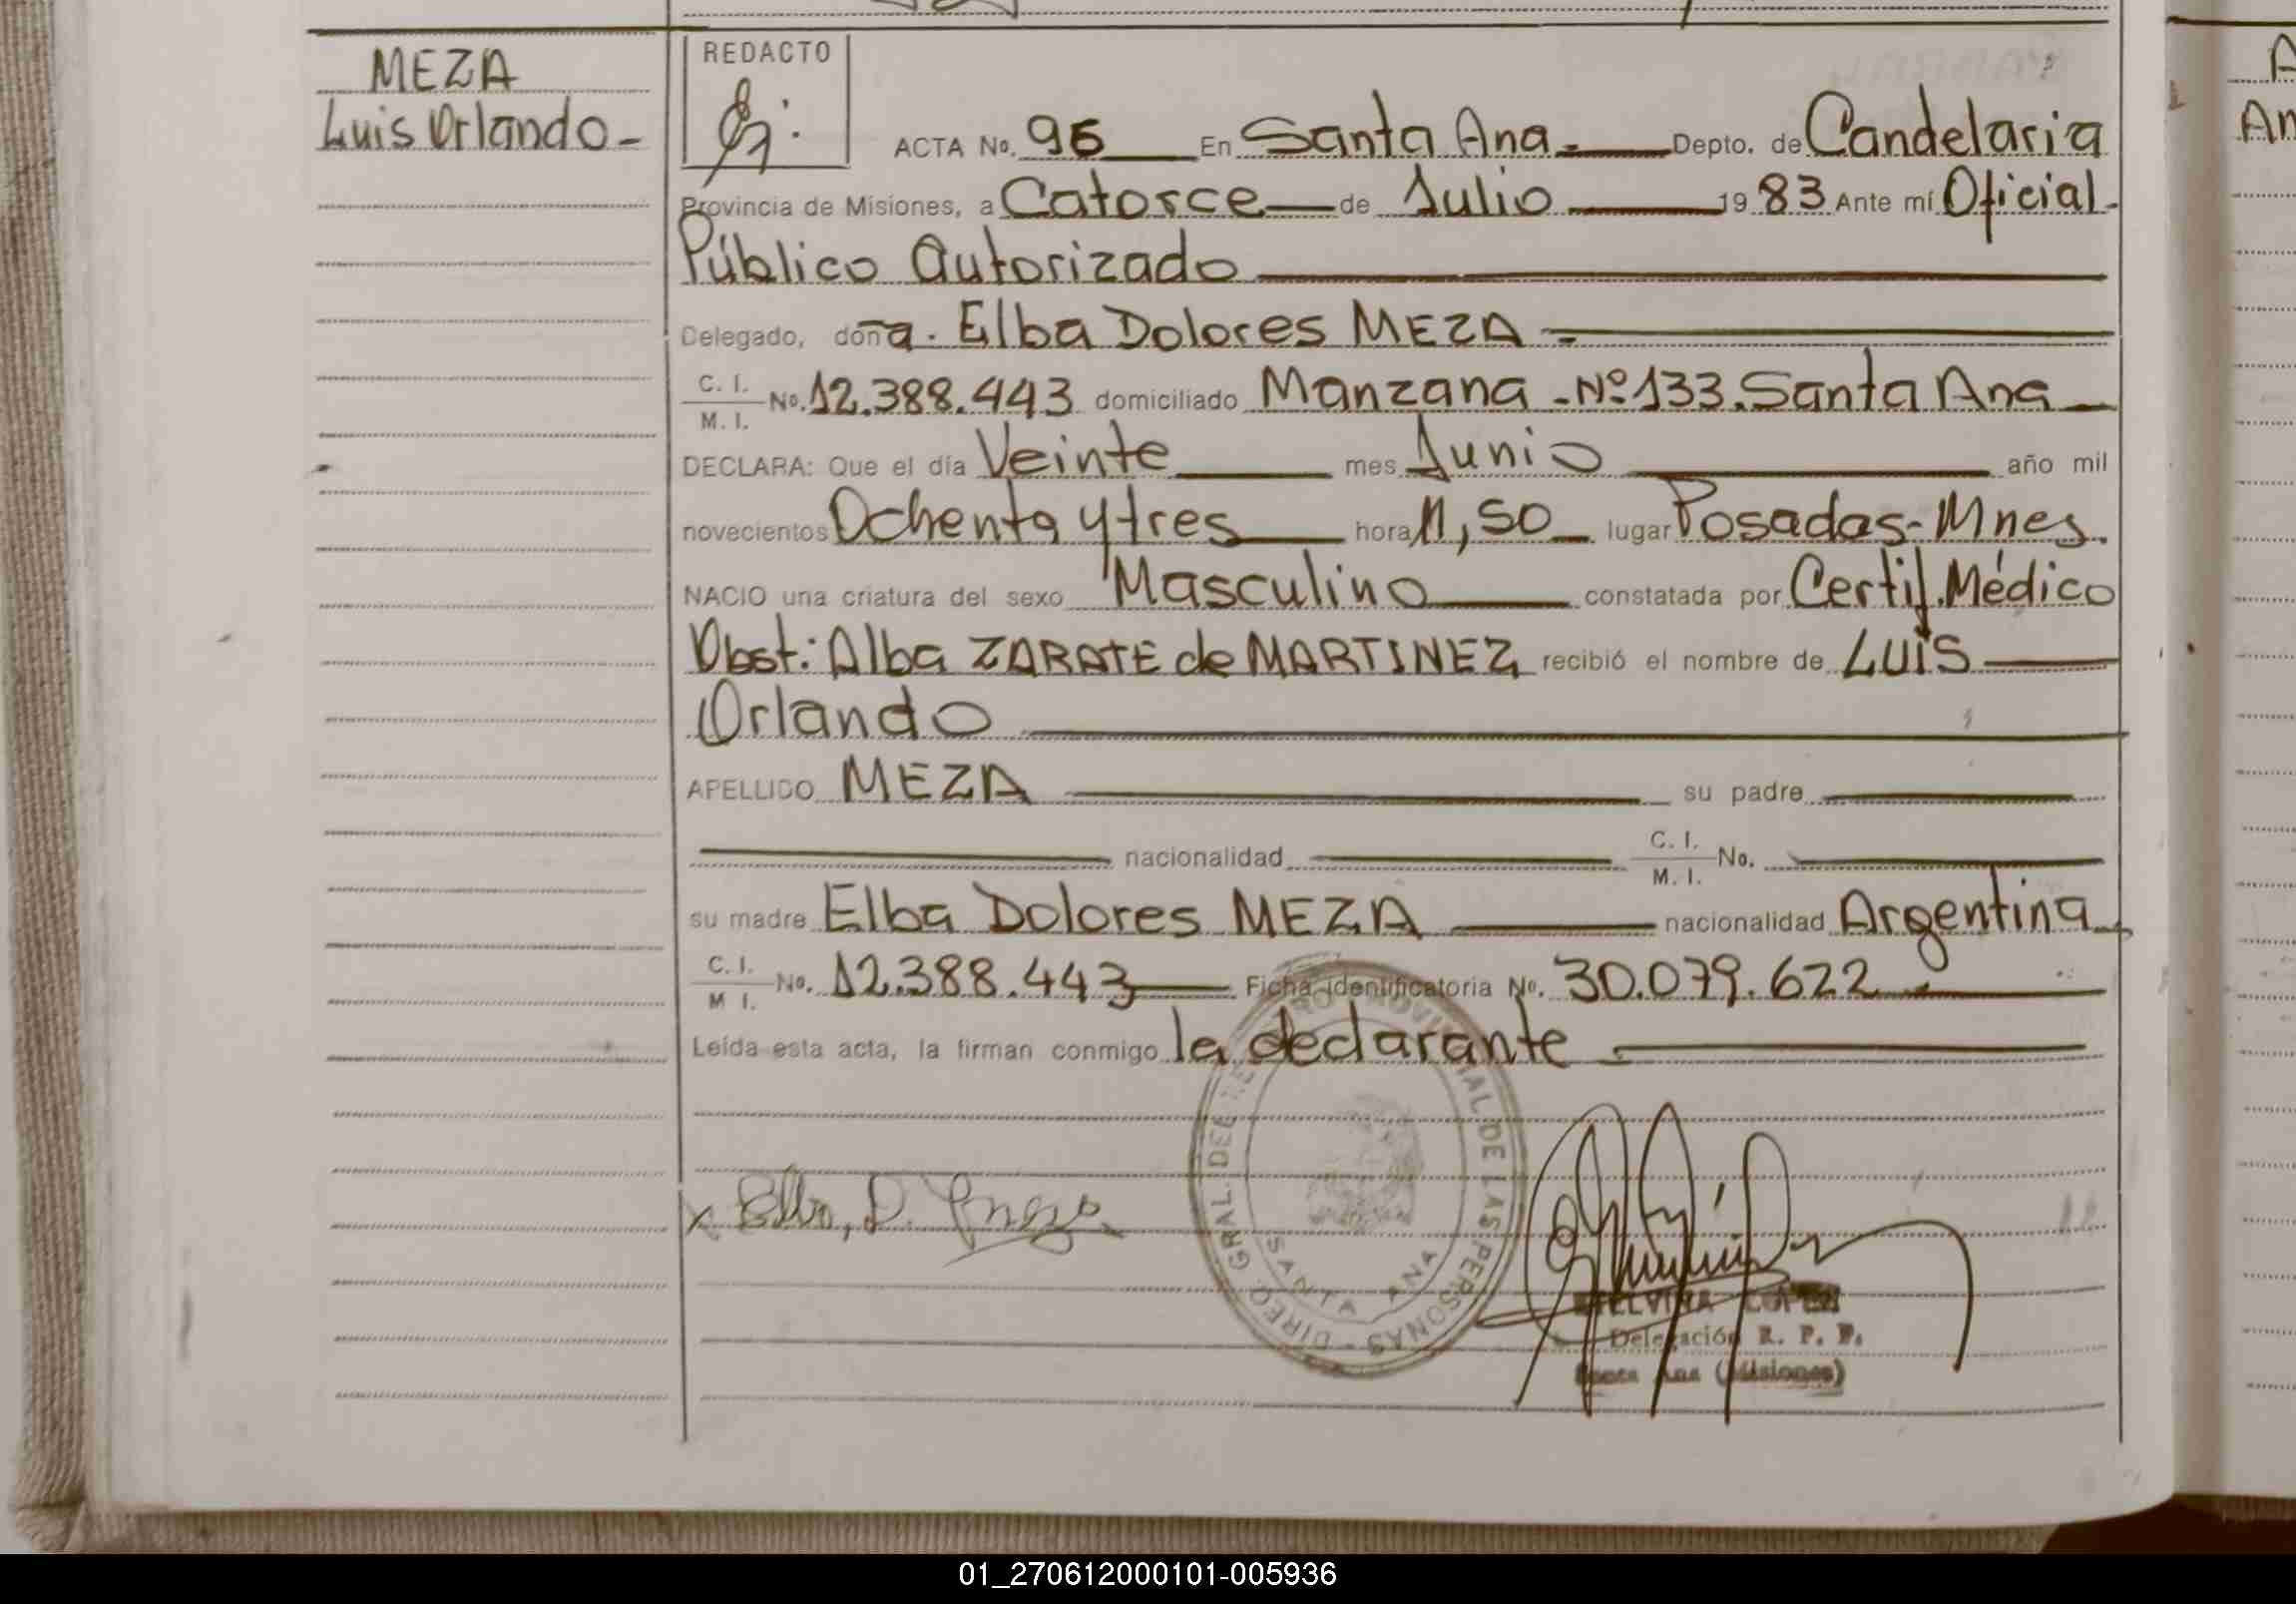 MEZA
Luis Orlando-
REDACTO
ACTA No. 96 En Santa Ana.- Depto. de Candelaria
Provincia de Misiones, a Catorce de Julio 1983 Ante mí Oficial
Público Autorizado
Delegado, doña. Elba Dolores MEZA -
C. I.
M. I. No. 12.388.443 domiciliado Manzana - Nº 133. Santa Ana
DECLARA: Que el día Veinte mes Junio año mil
novecientos Ochenta y tres hora 11,50 lugar Posadas- Mnes.
NACIO una criatura del sexo Masculino constatada por Certif. Médico
Obst: Alba ZARATE de MARTINEZ recibió el nombre de LUIS
Orlando
APELLIDO MEZA su padre
nacionalidad C. I.
M. I. No.
su madre Elba Dolores MEZA nacionalidad Argentina
C. I.
M I. No. 12.388.443 Ficha identificatoria No. 30.079.622
Leída esta acta, la firman conmigo la declarante
x Elba, D. Meza
DIREC. GRAL. DEL REGISTRO PROVINCIAL DE LAS PERSONAS -
SANTA ANA
ETELVINA LOPEZ
Delegación R. P. P.
Santa Ana (Misiones)
A
An
01_270612000101-005936